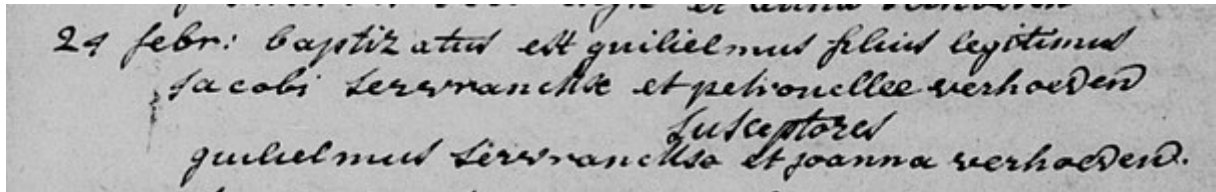 et anna
24 febr: baptizatus est guilielmus filius legitimus
jacobi serwranckse et petronellae verhoeven
susceptores
guilielmus serwranckse et joanna verhoeven.